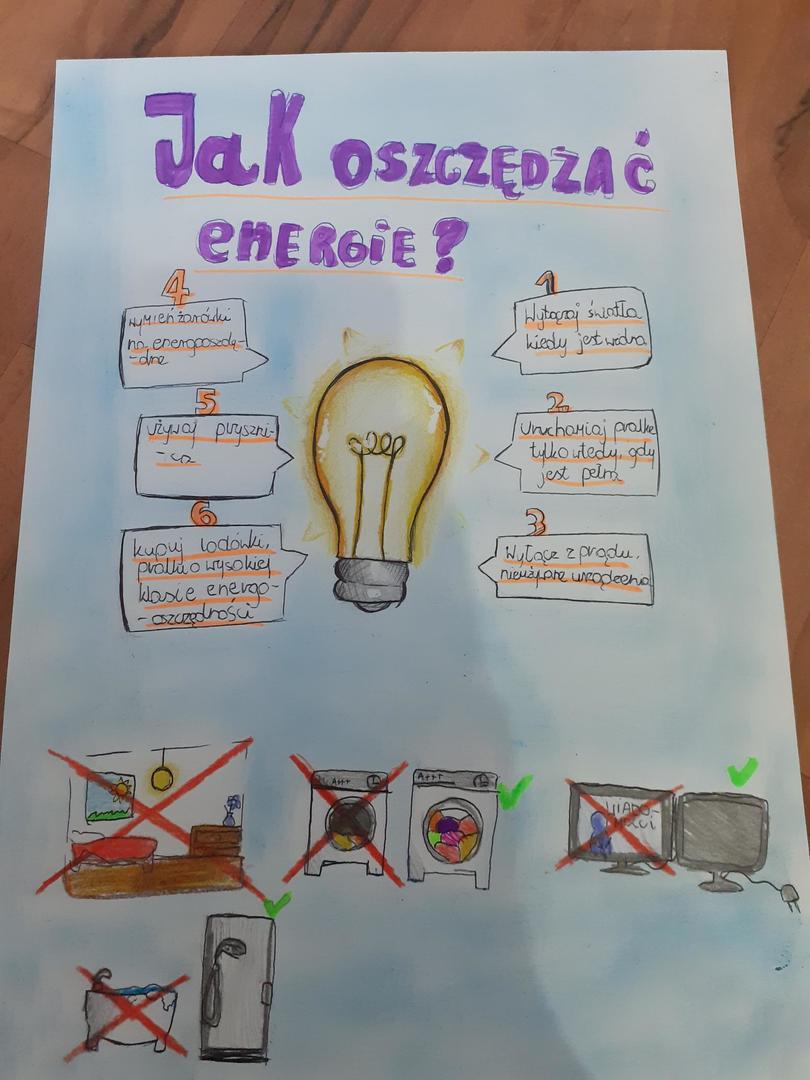 Jak oszczędzać
energie?
4
wymień żarówki
na energooszczę-
-dne
5
używaj pryszni-
-ca
6
kupuj lodówki,
pralki o wysokiej
klasie energo-
-oszczędności
1
Wyłączaj światła
kiedy jest widno
2
Uruchamiaj pralkę
tylko wtedy, gdy
jest pełna
3
Wyłącz z prądu,
nieużywane urządzenia
A+++
A+++
WIADO-
MOŚCI